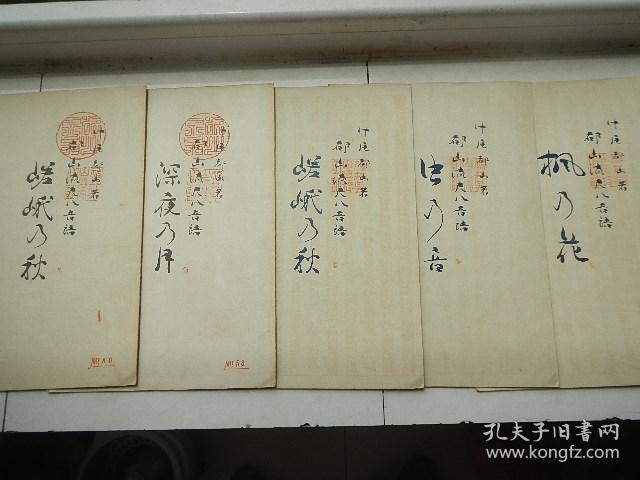 中尾都山著
都山流尺八音譜
嵯峨乃秋
中尾都山著
都山流尺八音譜
深夜乃月
中尾都山著
都山流尺八音譜
嵯峨乃秋
中尾都山著
都山流尺八音譜
虫乃音
中尾都山著
都山流尺八音譜
楓乃花
No. 58
孔夫子旧书网
www.kongfz.com